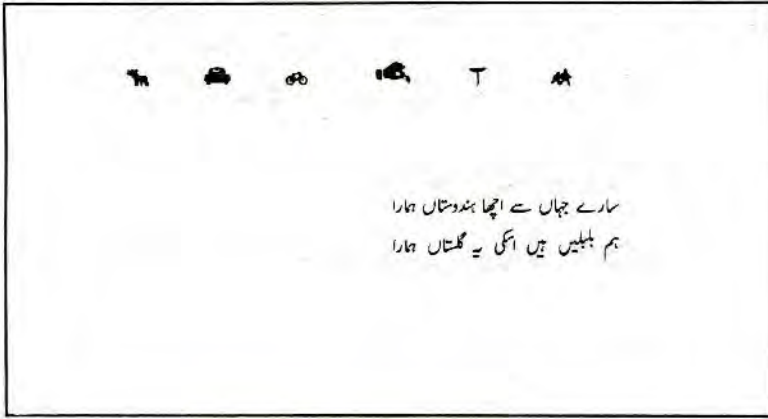 سارے جہاں سے اچھا ہندوستاں ہمارا
ہم بلبلیں ہیں اسکی یہ گلستاں ہمارا